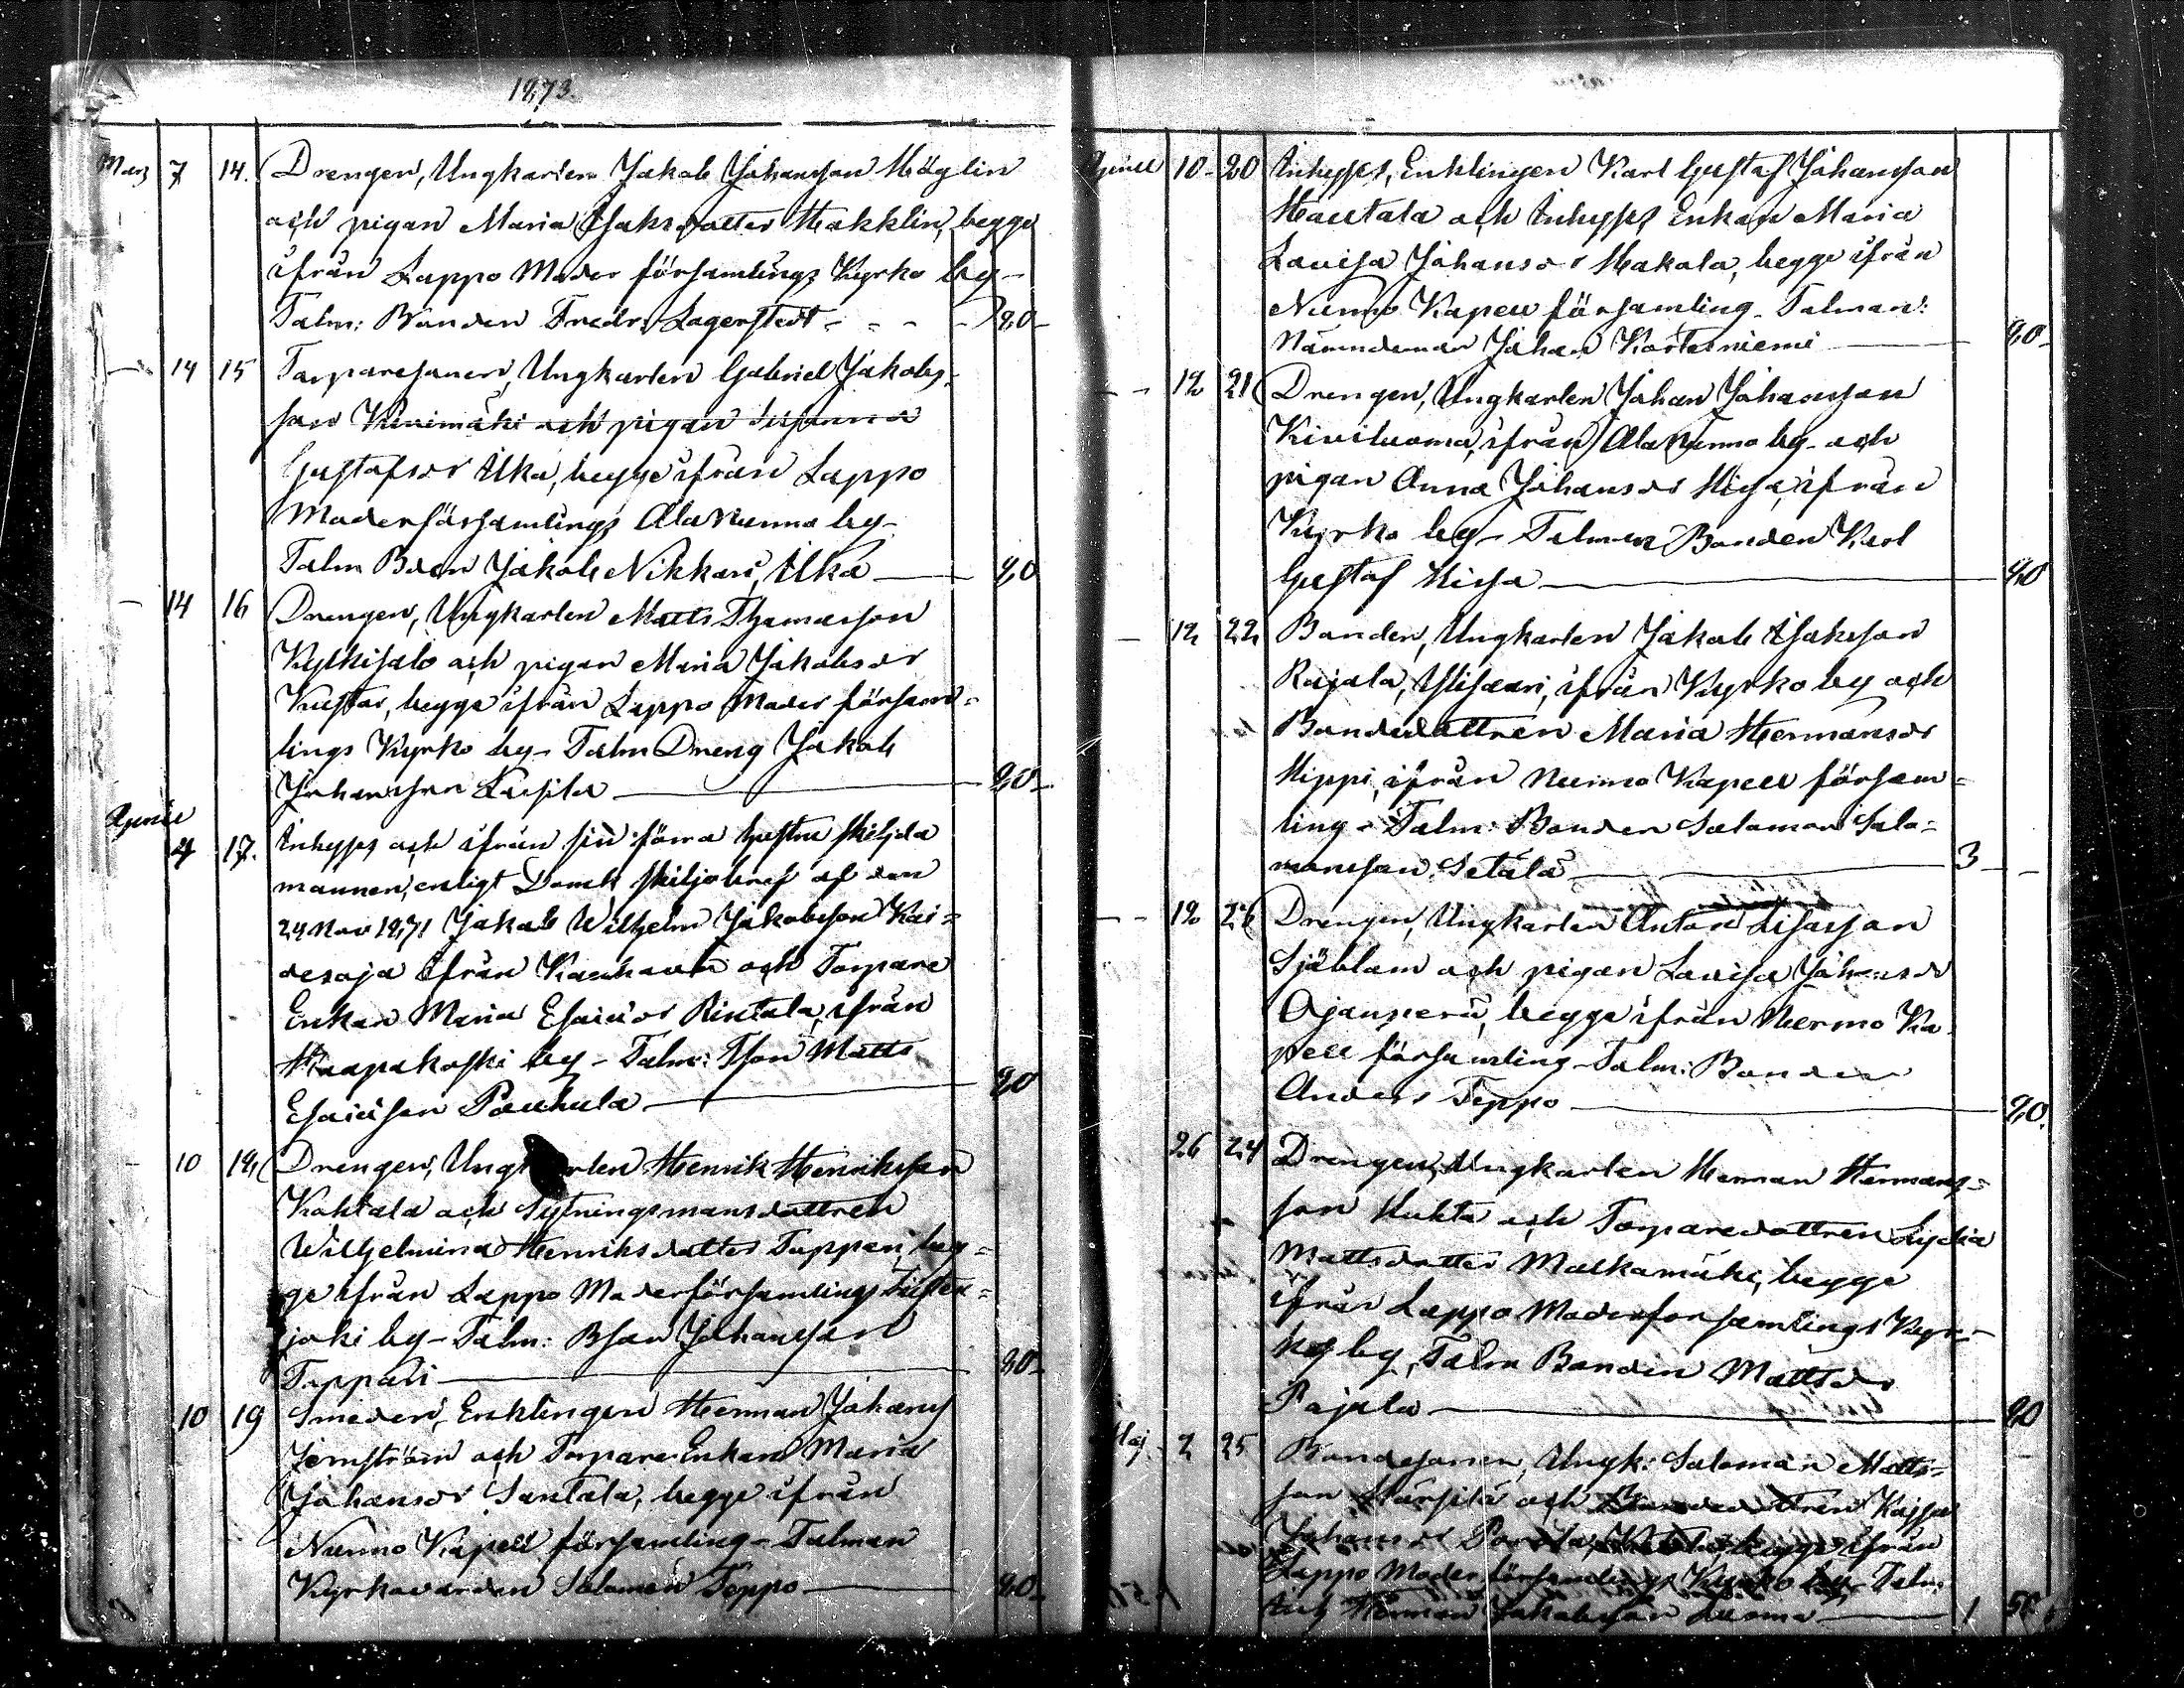 1873.
Mars 7 14. Drengen, Ungkarlen Jakob Johansson Höglin
och pigan Maria Isaksdotter Hakklin, begge
ifrån Lappo Moder församlings Kyrko by-
Talm: Bonden Fredr. Lagerstedt - - - 80-
— 14 15 Torparesonen, Ungkarlen Gabriel Jakobs-
son Kivimäki och pigan Susanna
Gustafsdr Ilka, begge ifrån Lappo
Moderförsamlings Ala Nurmo by-
Talm Bden Jakob Nikkari, Ilka — 80
— 14 16 Drengen, Ungkarlen Matts Thomasson
Kylkisalo och pigan Maria Jakobsdr
Kustar, begge ifrån Lappo Moder försam-
lings Kyrko by- Talm Dreng Jakob
Johansson Lusila — 80-
April 4 17. Inhyses och ifrån sin förra hustru skiljda
mannen, enligt Domk skiljobref af den
24 Nov 1871 Jakob Wilhelm Jakobsson Kai-
desoja ifrån Kauhava och Torpare
Enkan Maria Esaiädr Rintala, ifrån
Haapakoski by - Talm: Tson Matts
Esaiäson Pouhula — 80
— 10 18 Drengen, Ungkarlen Henrik Henriksson
Kohtala och Sytningsmansdottren
Wilhelmina Henriksdotter Toppari, beg-
ge ifrån Lappo Moderförsamlings Tiisten-
joki by - Talm: Bson Johansson
Toppari — 80-
10 19 Smeden, Enklingen Herman Johans
Jernström och Torpare Enkan Maria
Johansdr Santala, begge ifrån
Nurmo Kapell församling - Talman
Kyrkovärden Salomon Teppo — 80-
April 10 - 20 Inhyses, Enklingen Karl Gustaf Johansson
Hautala och Inhyses Enkan Maria
Lovisa Johansdr Makala, begge ifrån
Nurmo Kapell församling - Talman:
Nämndeman Johan Kortesniemi — 80-
- - 12 21 Drengen, Ungkarlen Johan Johansson
Kiviluoma, ifrån Ala Nurmo by och
pigan Anna Johansdr Hissa, ifrån
Kyrko by - Talman Bonden Karl
Gustaf Hissa — 80
— 12 22 Bonden, Ungkarlen Jakob Isaksson
Rajala, Ylisaari, ifrån Kyrko by och
Bondedottren Maria Hermansdr
Hippi, ifrån Nurmo Kapell försam-
ling - Talm: Bonden Salomon Salo-
monsson Setälä — 3 -
- - 12 23 Drengen, Ungkarlen Anton
Sjöblom och pigan Lovisa Johansdr
Ojanperä, begge ifrån Nurmo Ka-
pell församling - Talm: Bonden
Anders Teppo — 80.
26 24 Drengen, Ungkarlen Herman Hermans-
son Huhta och Torparedottren Lydia
Mattsdotter Malkamäki, begge
ifrån Lappo Moderforsamlings Kyr-
ko by, Talm Bonden Matts
Rajala — 80
Maj 2 25 Bondesonen, Ungk: Salomon Matts-
son Härsilä och Bondedottren Kajsa
Johansdr begge ifrån
Lappo Moder församlings Kyrko by - Talm.
Inh Herman Jakobsson Luoma — 1 50